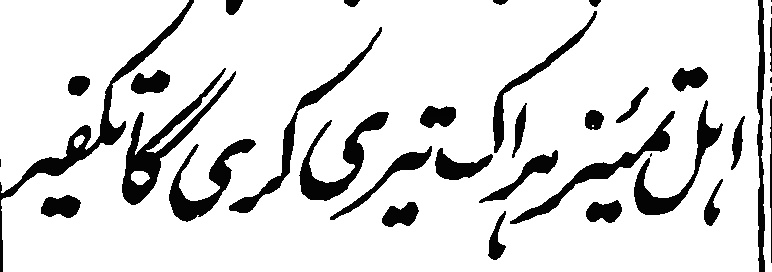 اہل تمئیز ہراک تیری کری گا تکفیر